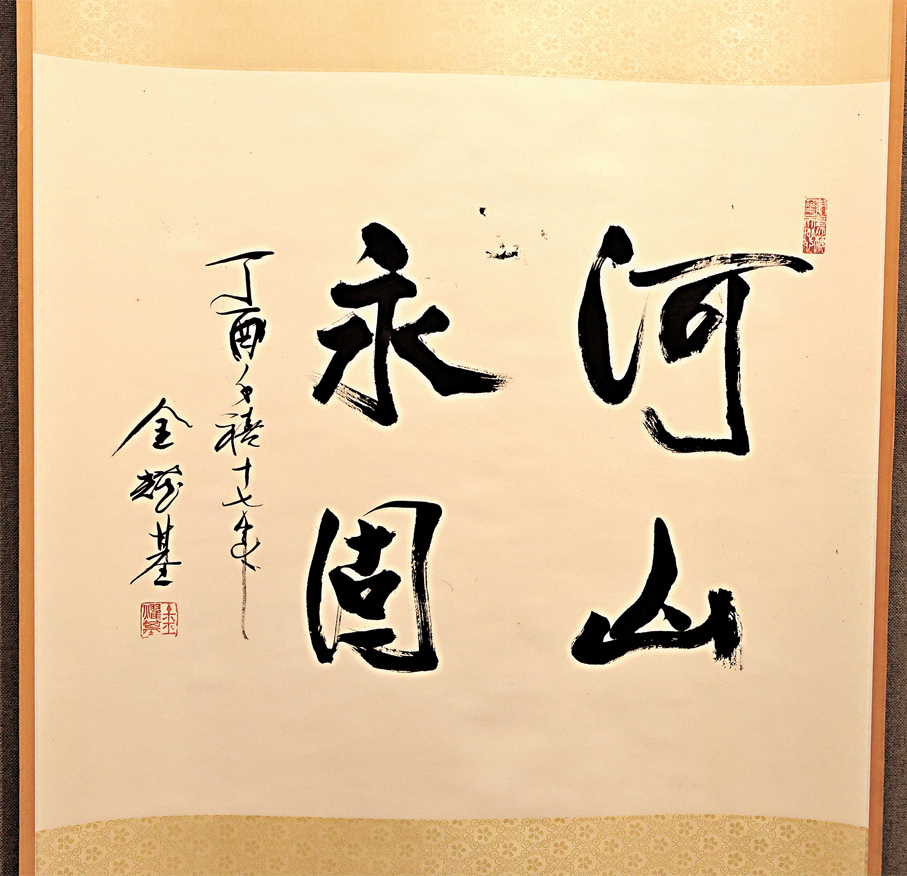 河山
永固
丁酉千禧十七年
金耀基